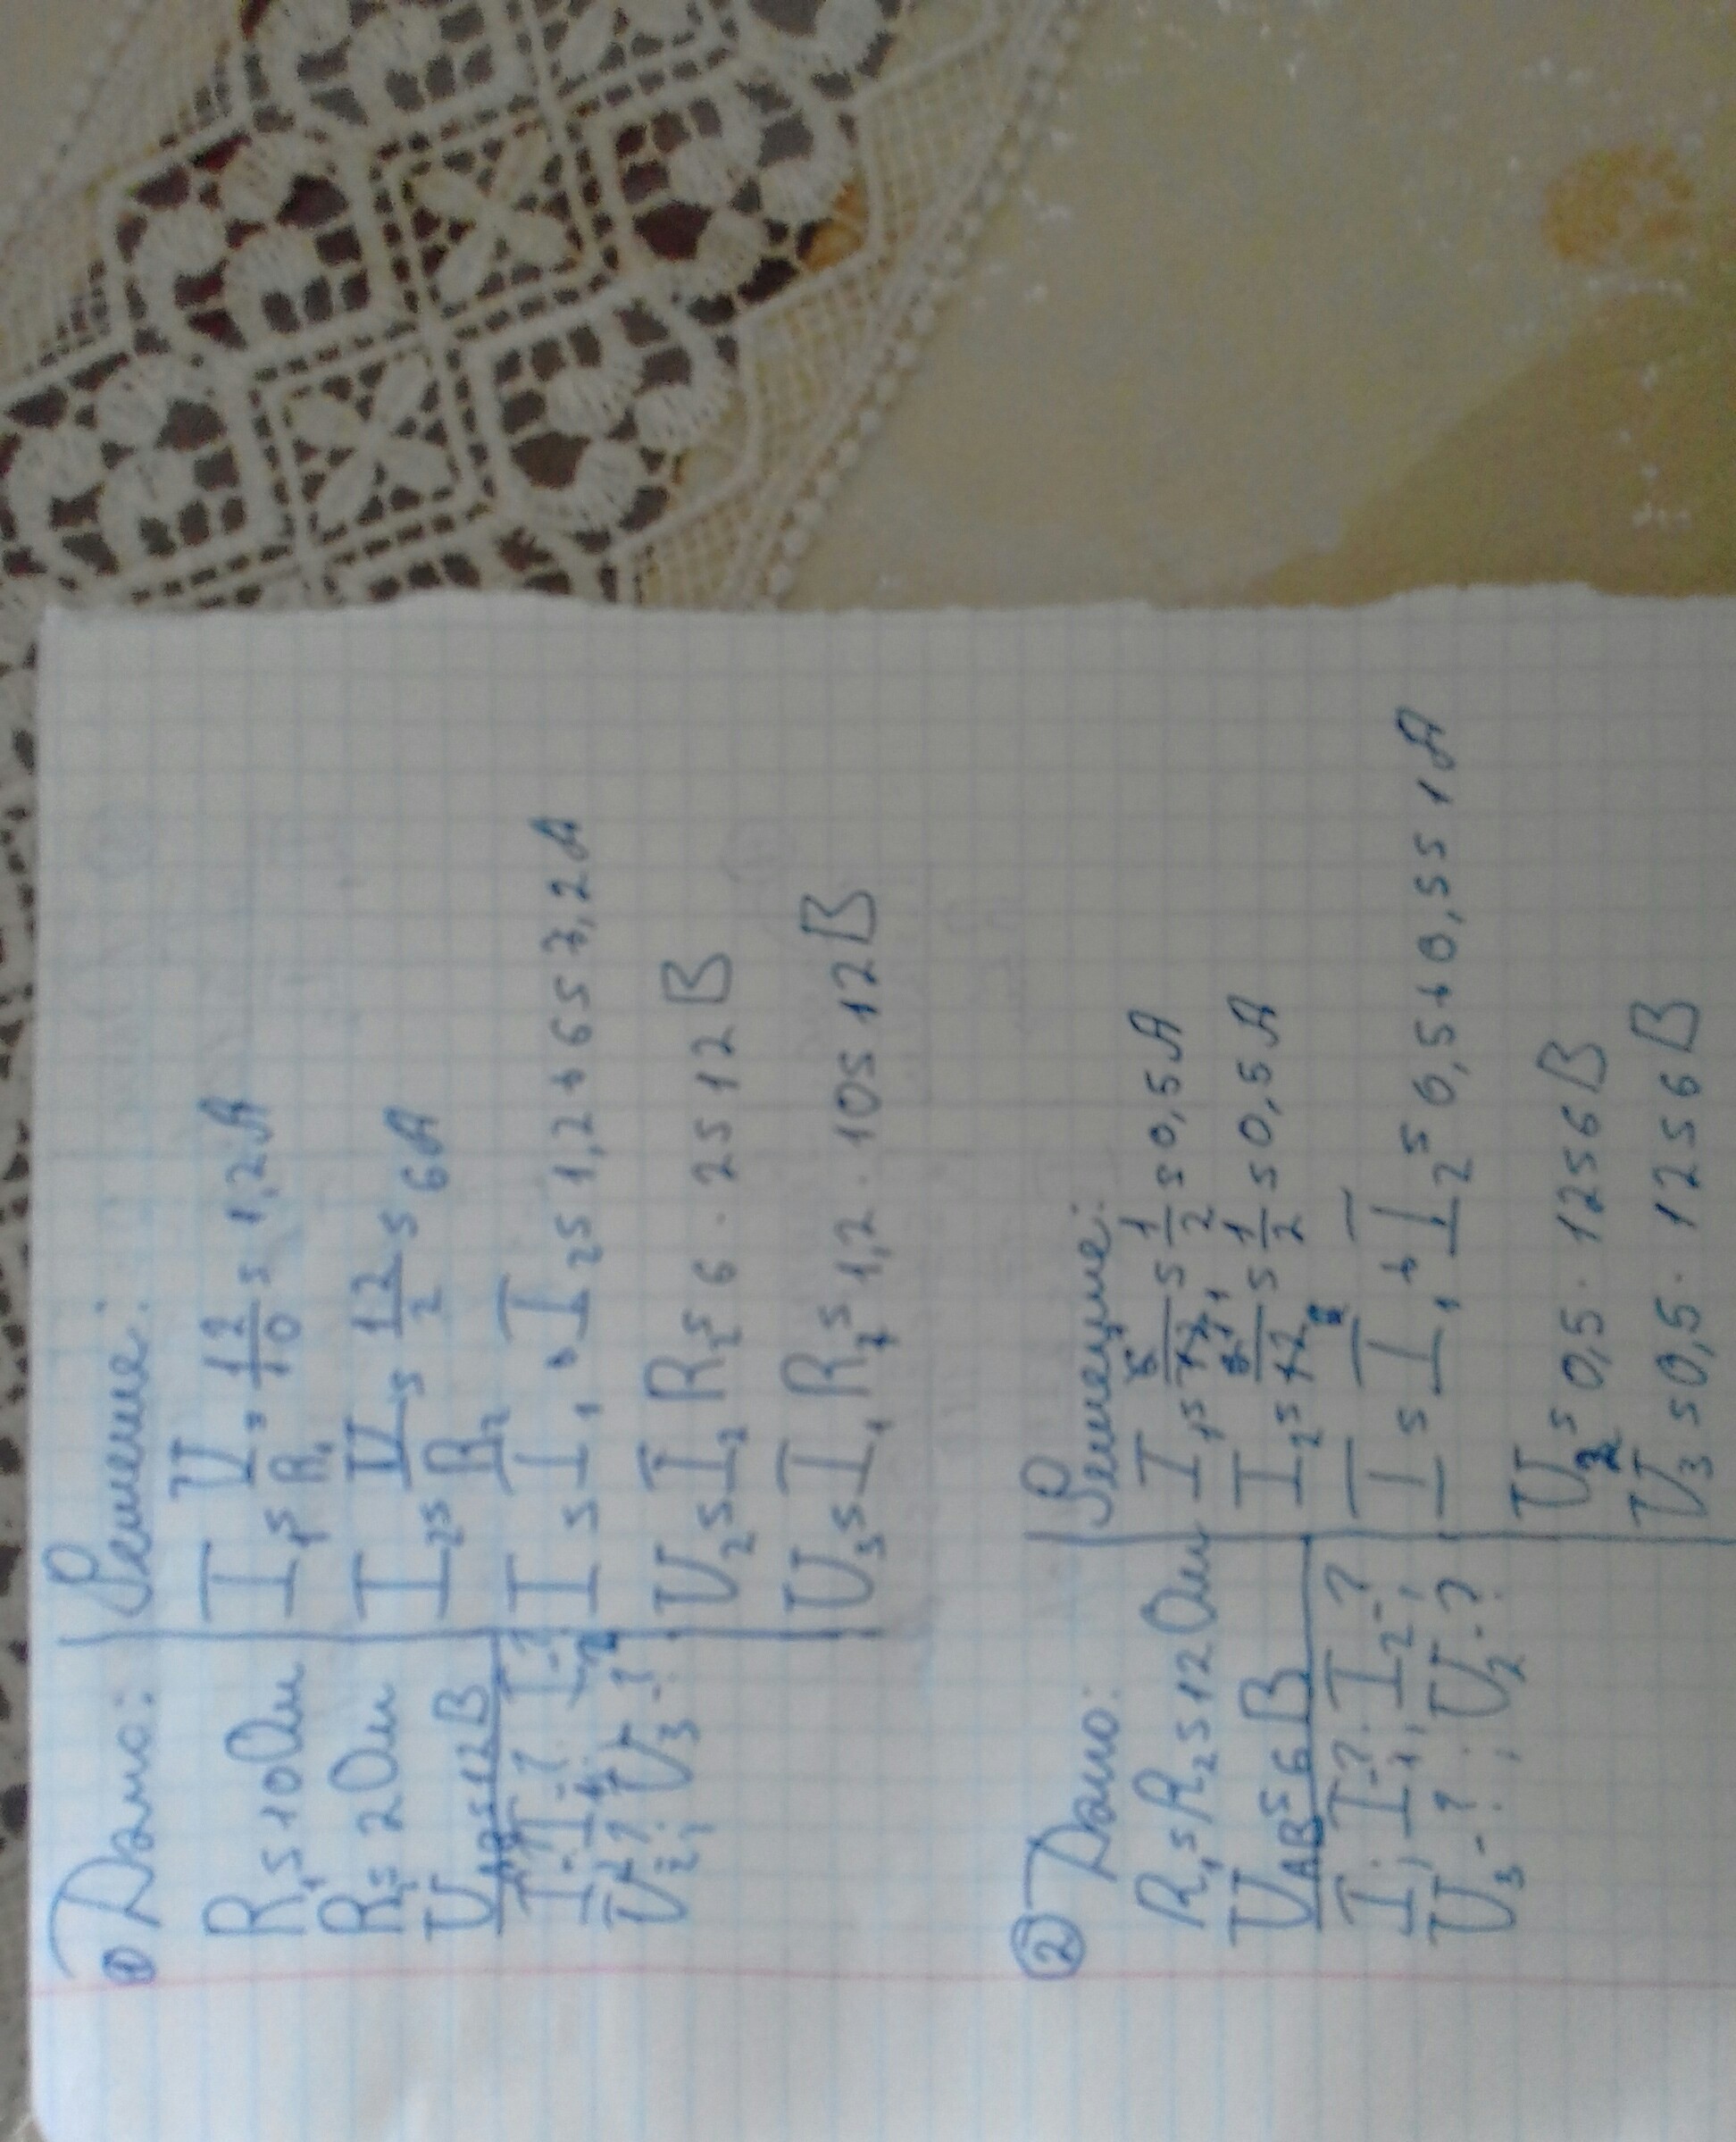 ① Дано:
R₁ = 10 Ом
R₂ = 2 Ом
U_AB = 12 В
I-? I₁-? I₂-?
U₂-? U₃-?
Решение:
I₁ = U/R₁ = 12/10 = 1,2 А
I₂ = U/R₂ = 12/2 = 6 А
I = I₁ + I₂ = 1,2 + 6 = 7,2 А
U₂ = I₂ R₂ = 6 · 2 = 12 В
U₃ = I₁ R₁ = 1,2 · 10 = 12 В
② Дано:
R₁ = R₂ = 12 Ом
U_AB = 6 В
I; I₁ I-?; I₂-?
U₃-?; U₂-?
Решение:
I₁ = 6/12 = 1/2 = 0,5 А
I₂ = 6/12 = 1/2 = 0,5 А
I = I₁ + I₂ = 0,5 + 0,5 = 1 А
U₂ = 0,5 · 12 = 6 В
U₃ = 0,5 · 12 = 6 В